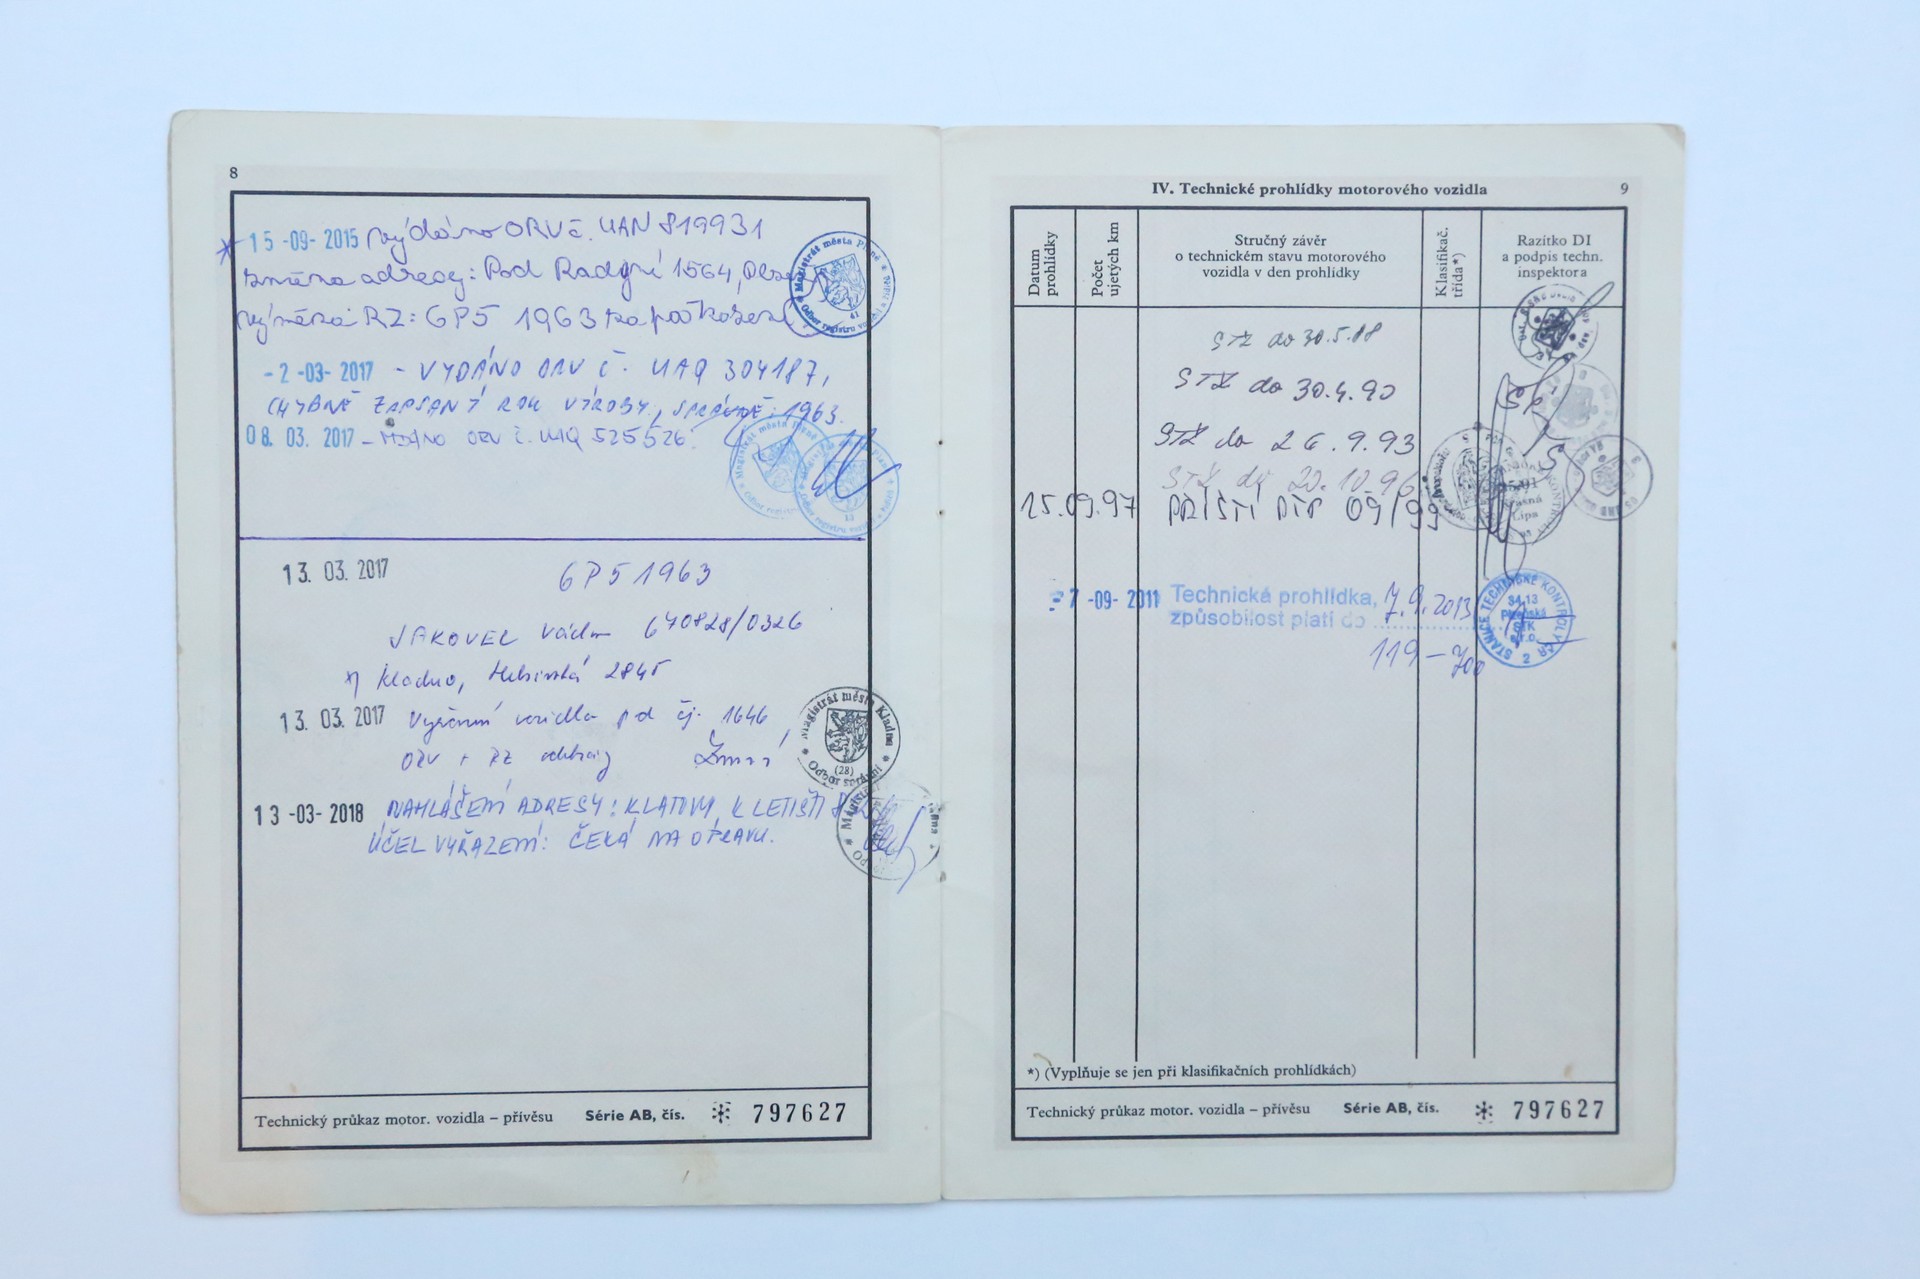 8
15-09-2015 Vydáno ORV č. UAN 819931
změna adresy: Pod Radyní 1564, Plzeň
výměna RZ: 6P5 1963 za poškození
-2-03-2017 - VYDÁNO ORV č. UAQ 304187,
CHYBNĚ ZAPSANÝ ROK VÝROBY, SPRÁVNĚ: 1963.
08. 03. 2017 - ORV č. UAQ 525526.
13. 03. 2017 6P5 1963
JAKOVEC Václav 670828/0326
Kladno, 2845
13. 03. 2017 Vyřazení vozidla pod čj. 1646,
ORV + RZ
13-03-2018 NAHLÁŠENÍ ADRESY: KLATOVY, K LETIŠTI
ÚČEL VYŘAZENÍ: ČEKÁ NA OPRAVU.
Technický průkaz motor. vozidla – přívěsu Série AB, čís. 797627
IV. Technické prohlídky motorového vozidla 9
Datum prohlídky
Počet ujetých km
Stručný závěr
o technickém stavu motorového
vozidla v den prohlídky
Klasifikač. třída*)
Razítko DI
a podpis techn.
inspektora
STK do 30.5.88
STK do 30.4.90
STK do 26.9.93
STK do 20.10.96
15.09.97 PŘÍŠTÍ 09/99
-7-09-2011 Technická prohlídka, 7.9.2013
způsobilost platí do
119-700
STANICE TECHNICKÉ KONTROLY ČR
34.13
Plzeňská
STK
s.r.o.
2
Magistrát města Plzně
Odbor registru
41
Magistrát města Kladna
(28)
*) (Vyplňuje se jen při klasifikačních prohlídkách)
Technický průkaz motor. vozidla – přívěsu Série AB, čís. 797627